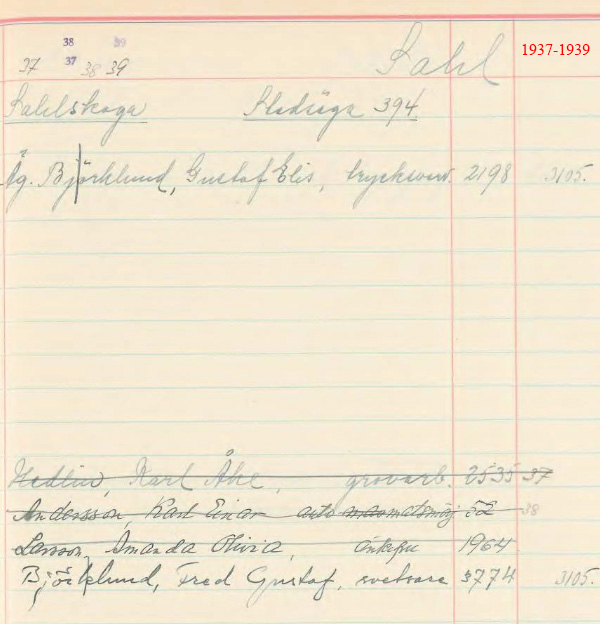 38 39
37 37 38 39 Sahl 1937-1939
Sahlskoga Stadsäga 394.
Äg. Björklund, Gustaf Elis, 2198 3105.
Hedlin, Karl Åke, grovarb. 2535 37
Andersson, Karl Einar auto 52 38
Larsson, Amanda Olivia, änkefru 1964
Björklund, Fred Gustaf, svetsare 3774 3105.